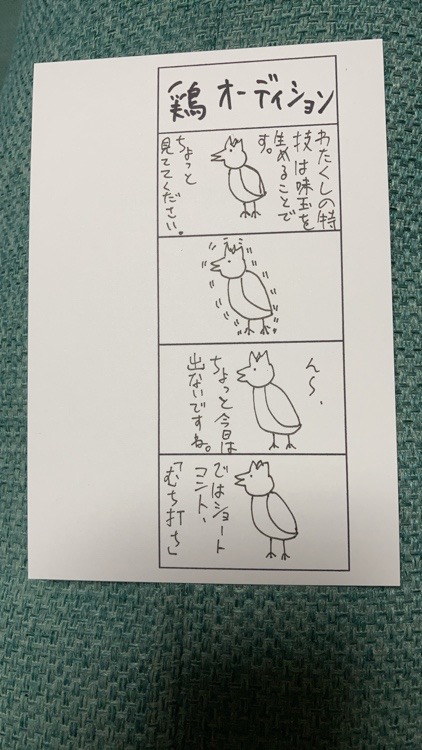 鶏オーディション
わたくしの特
技は味玉を
生めることで
す。
ちょっと
見ててください。
ん〜、
ちょっと今日は
出ないですね。
ではショート
コント、
「むち打ち」